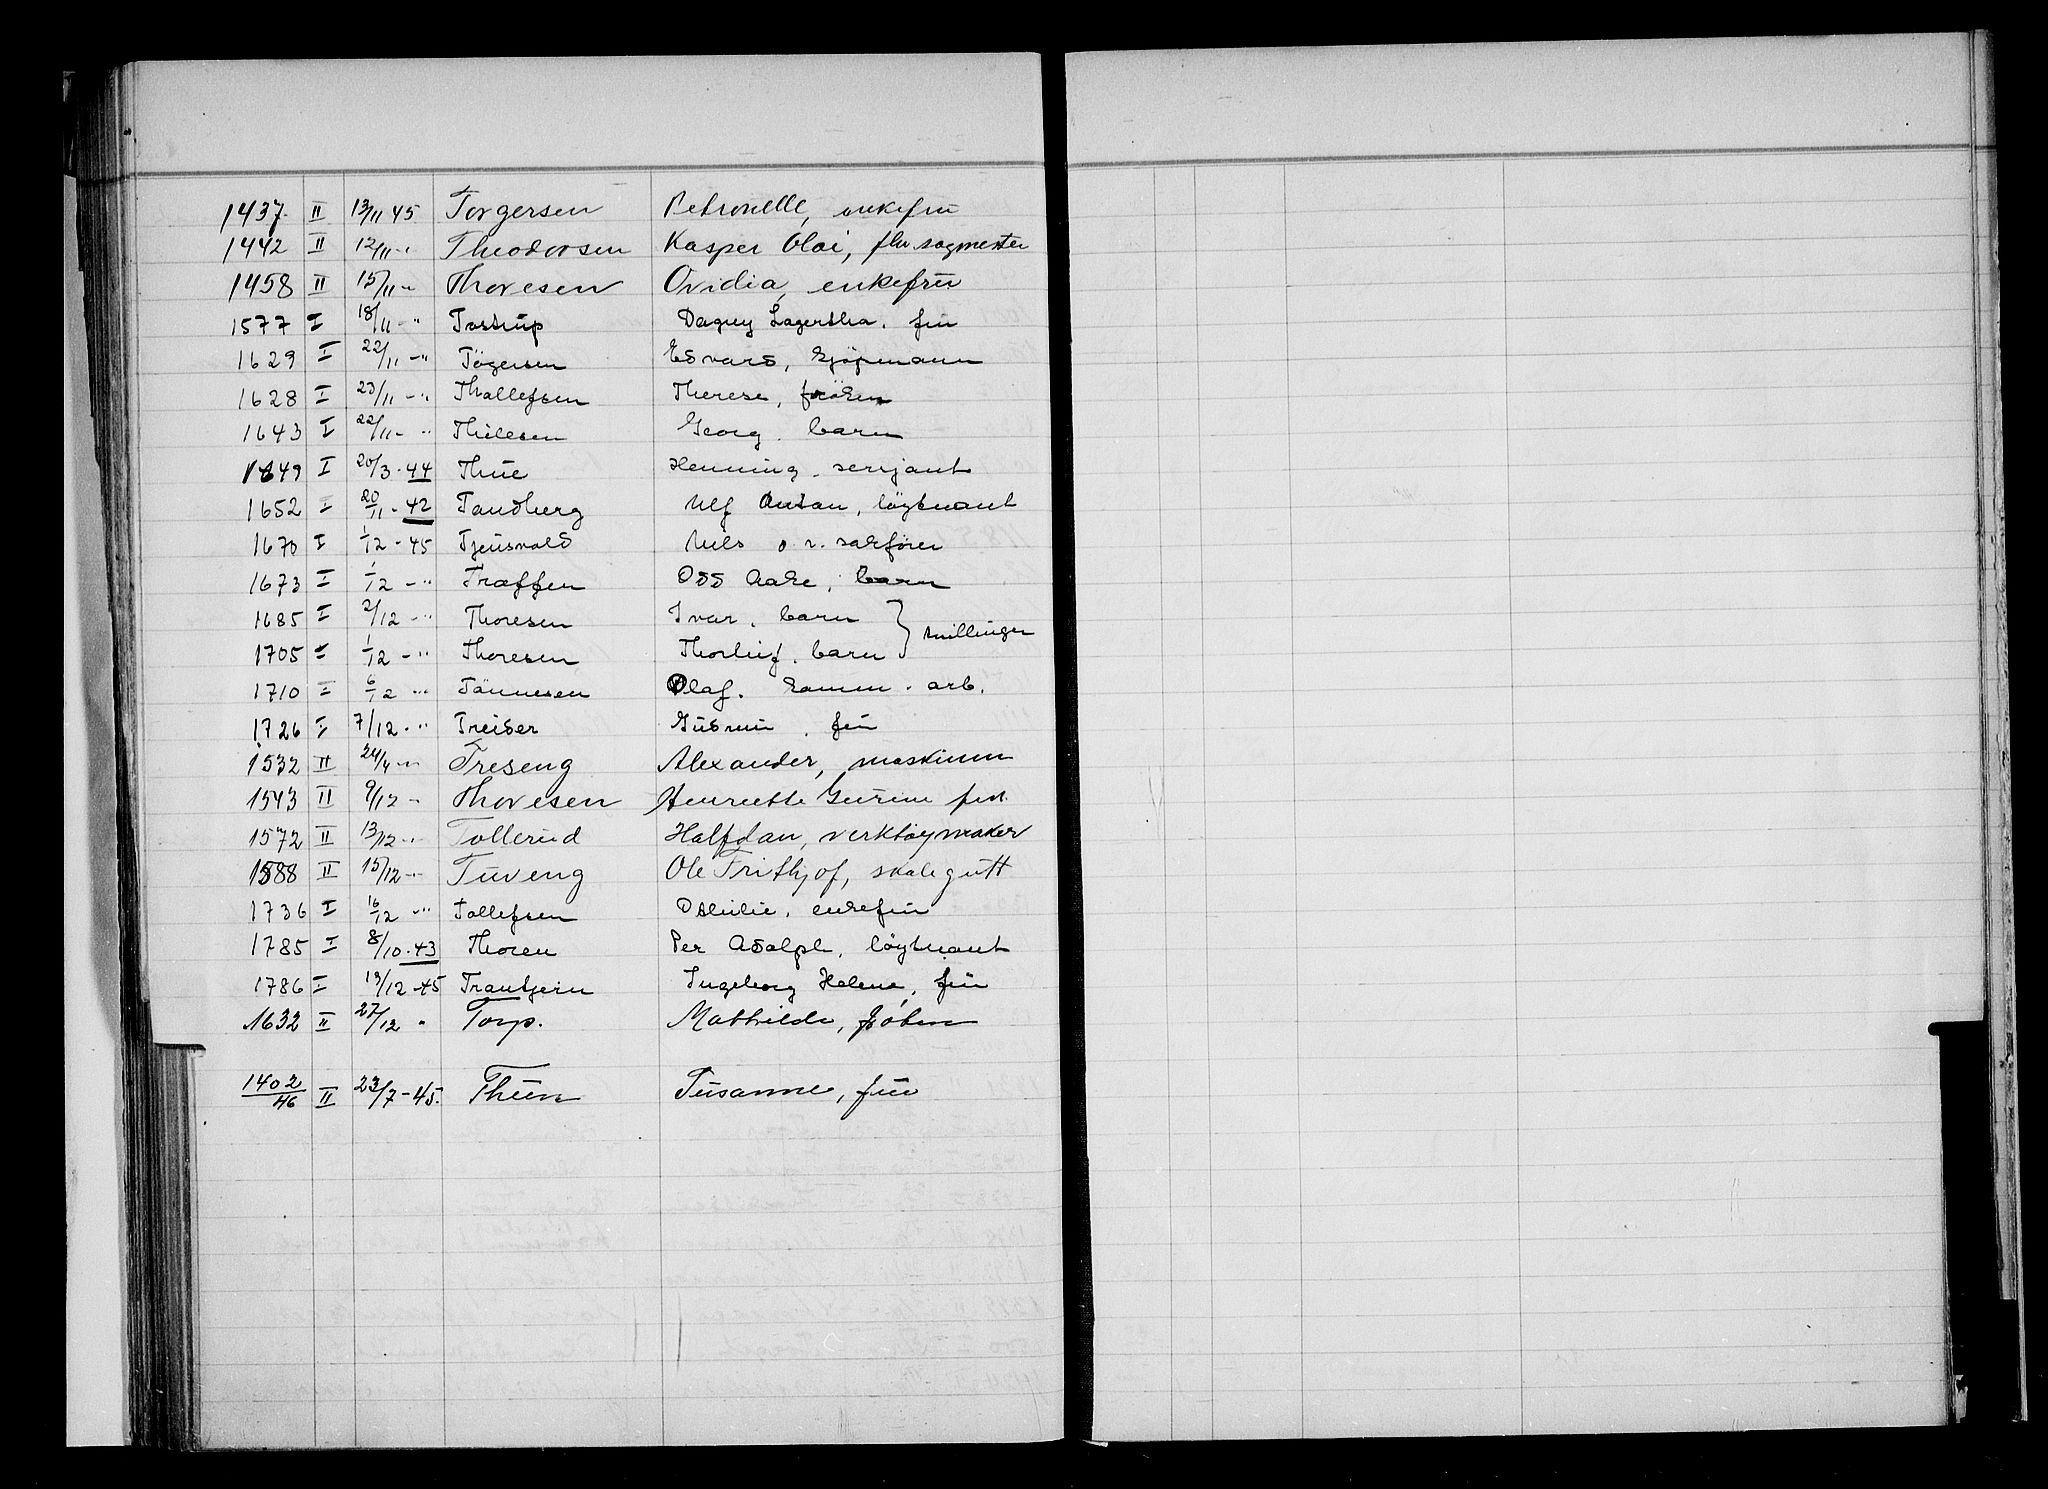 1437 II 13/11 45. Torgersen Petronelle, enkefrü
1442 II 12/11 - " Theodorsen Kasper Olai, fhv. sagmester
1458 II 15/11 - " Thoresen Ovidia, enkefrü
1577 I 18/11 - " Tostrüp Dagny Lagertha. frü
1629 I 22/11 - " Tögersen Edvard, kjöpmann
1628 I 23/11 - " Thallefsen Therese, fröken
1643 I 22/11 - " Georg. barn
1649 I 20/3 - 44 Thüe Henning. serjant
1652 I 20/11 - 42 Tandberg Ulf Anton, löytnant
1670 I 1/12 - 45 Tjensvold Nils o.r. sakförer
1673 I 1/12 - " Træffen Odd Aake, barn
1685 I 2/12 - " Thoresen Ivar. barn
tvillinger
1705 I 1/12 - " Thoresen Thorleif. barn
1710 I 6/12 " Tönnesen Olaf. komm. arb.
1726 I 7/12 - " Treider Güdrün. frü
1532 II 24/4 - " Treseng Alexander, maskinm
1543 II 9/12 - Thoresen Henriette
1572 II 13/12 - " Tollerüd Halfdan, verktøymaker
1588 II 15/12 - " Tüveng Ole Frithjof, skolegutt
1736 I 16/12 " Tollefsen enkefrü
1785 I 8/10 - 43 Thoren Per Adolph, löytnant
1786 I 19/12 - 45 Trantjern Ingeborg Helene, frü
1632 II 27/12 " Torp. Mathilde, fröken
1402/46 II 23/7 - 45. Thüne Süsanne, früe